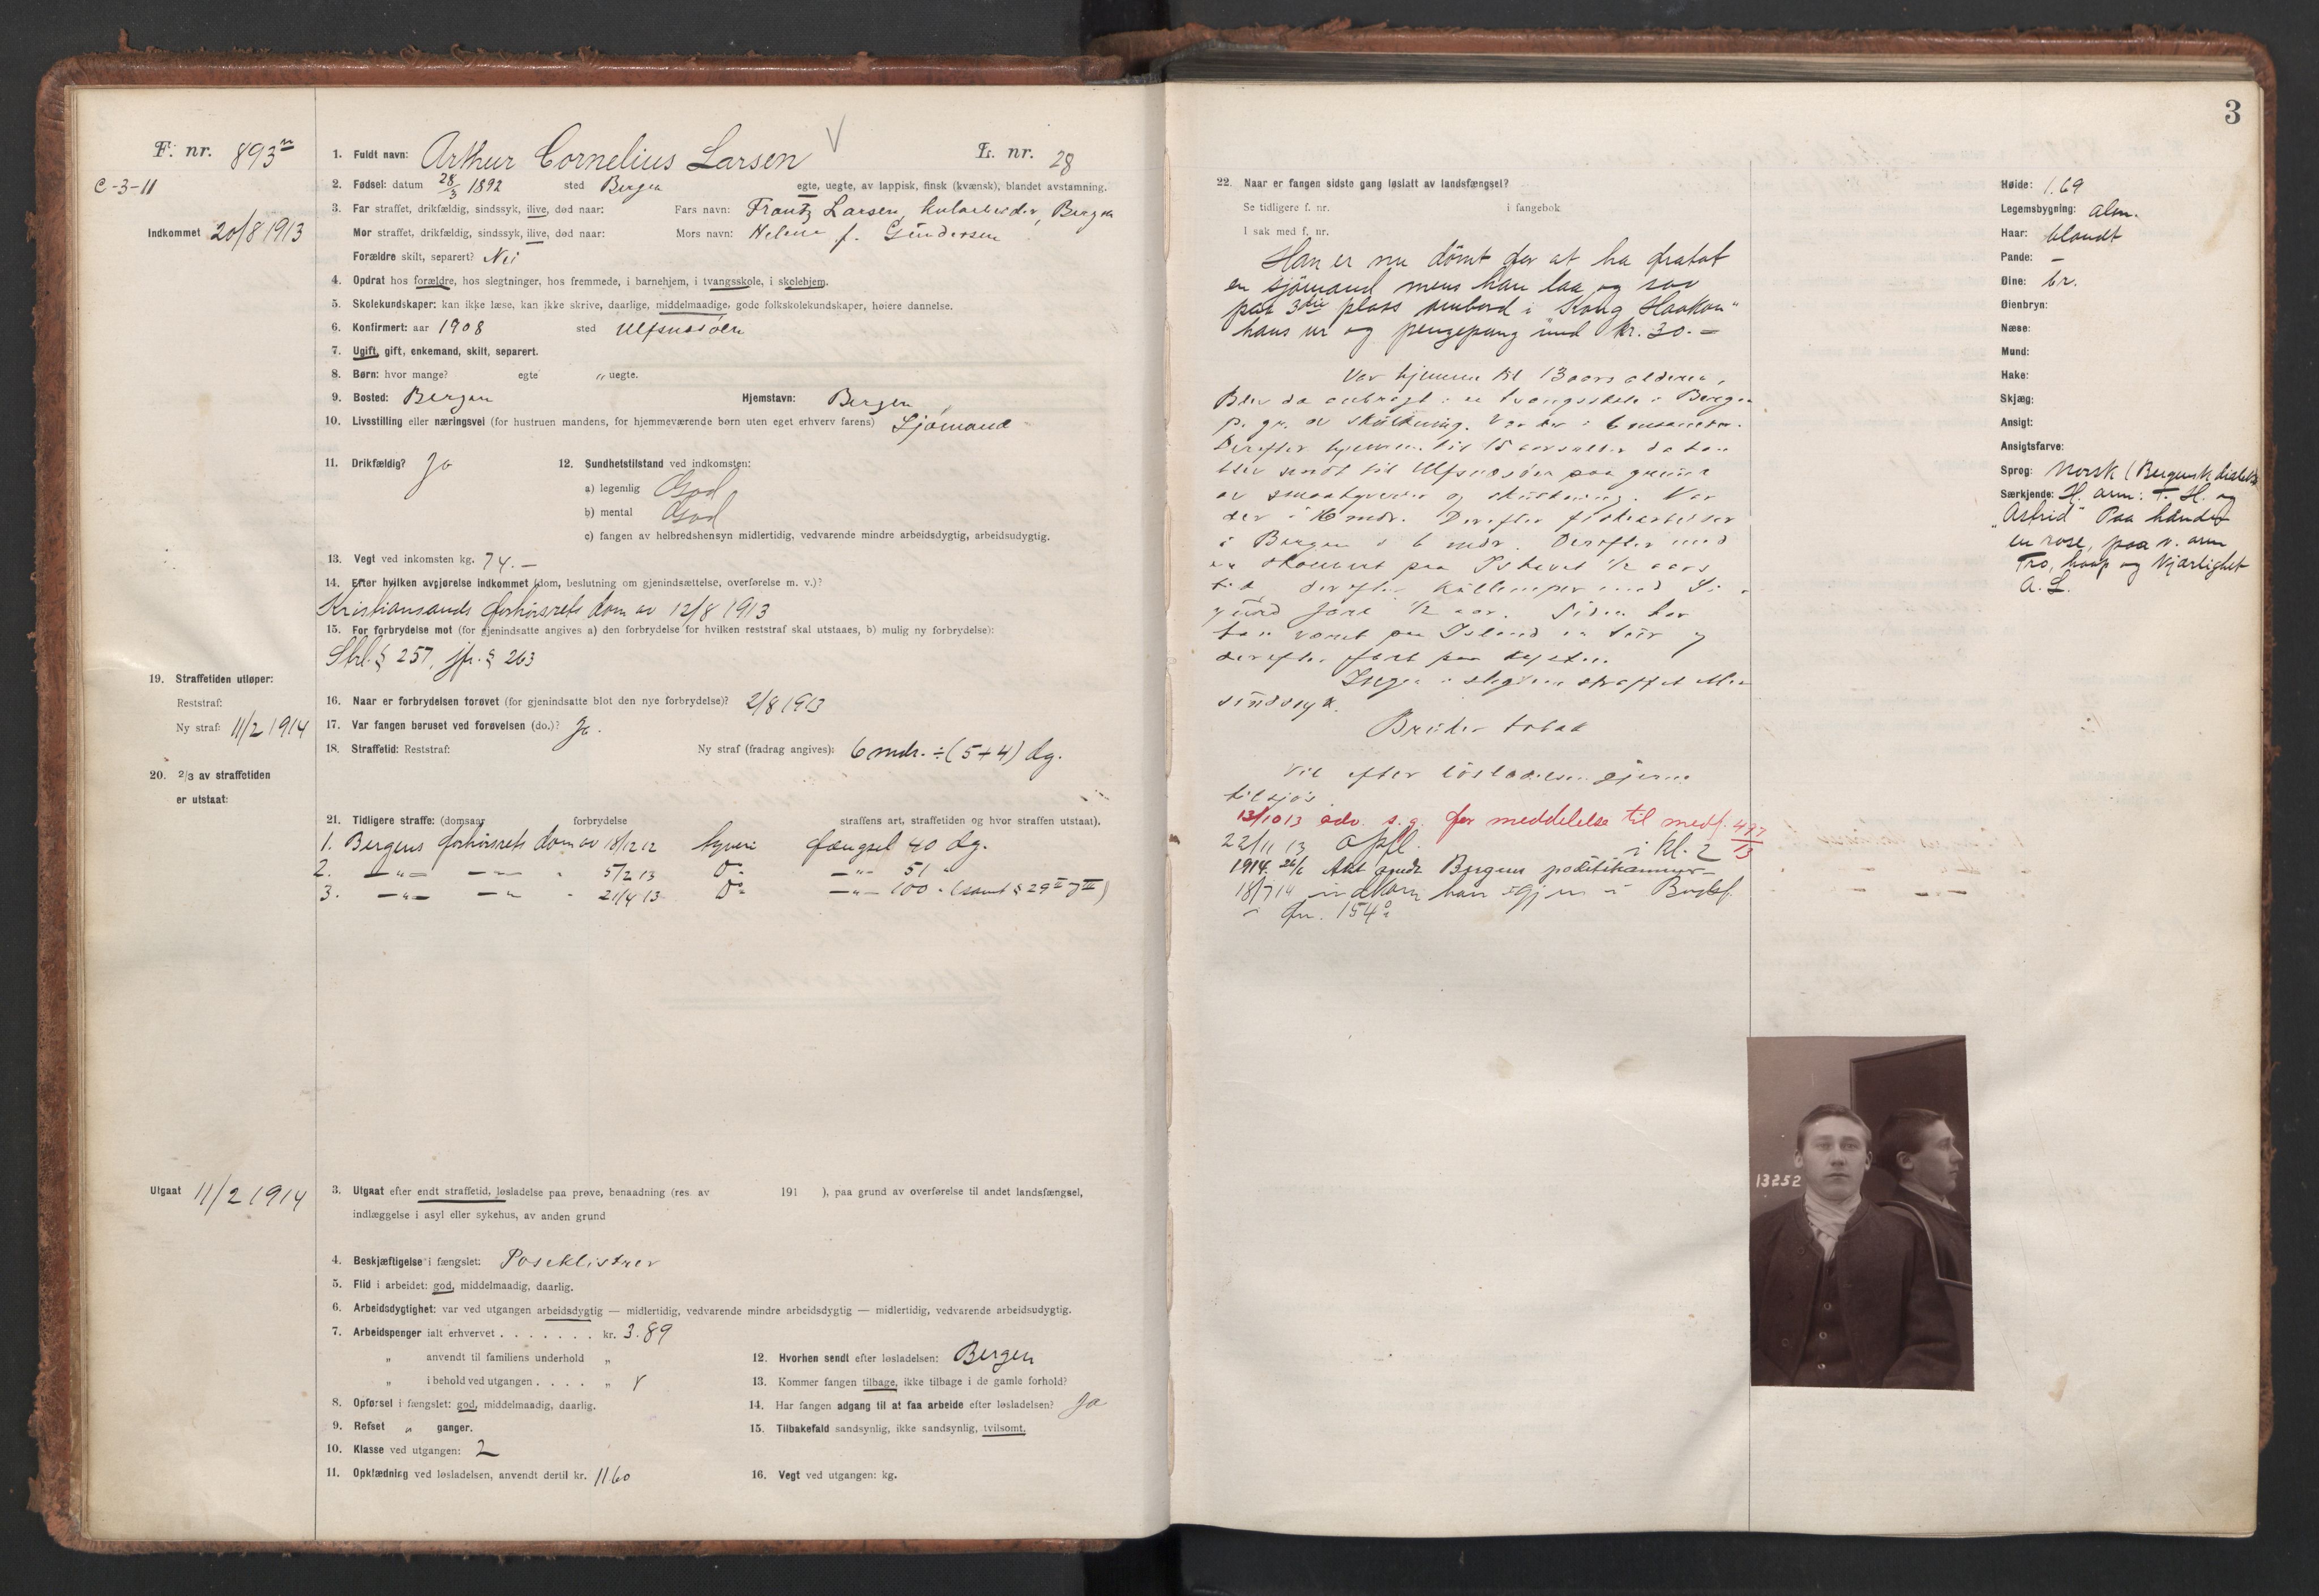 F. nr. 893
L. nr. 28
C-3-11
Indkommet 20/8 1913
1. Fuldt navn: Arthur Cornelius Larsen
2. Fødsel: datum 28/3 1892 sted Bergen egte, uegte, av lappisk, finsk (kvænsk), blandet avstamning.
3. Far straffet, drikfældig, sindssyk, ilive, død naar: Fars navn: Frantz Larsen, Bergen
Mor straffet, drikfældig, sindssyk, ilive, død naar: Mors navn: Helene f. Gundersen
Forældre skilt, separert? Nei
4. Opdrat hos forældre, hos slegtninger, hos fremmede, i barnehjem, i tvangsskole, i skolehjem.
5. Skolekundskaper: kan ikke læse, kan ikke skrive, daarlige, middelmaadige, gode folkskolekundskaper, høiere dannelse.
6. Konfirmert: aar 1908 sted Ulfsnesöen
7. Ugift, gift, enkemand, skilt, separert.
8. Børn: hvor mange? egte „ uegte.
9. Bosted: Bergen Hjemstavn: Bergen
10. Livsstilling eller næringsvei (for hustruen mandens, for hjemmeværende børn uten eget erhverv farens) Sjömand
11. Drikfældig? Ja
12. Sundhetstilstand ved indkomsten:
a) legemlig God
b) mental God
c) fangen av helbredshensyn midlertidig, vedvarende mindre arbeidsdygtig, arbeidsudygtig.
13. Vegt ved inkomsten kg. 74.-
14. Efter hvilken avgjørelse indkommet (dom, beslutning om gjenindsættelse, overførelse m. v.)?
Kristiansands forhörsrets dom av 12/8 1913
15. For forbrydelse mot (for gjenindsatte angives a) den forbrydelse for hvilken reststraf skal utstaaes, b) mulig ny forbrydelse):
Strl. § 257, jfr. § 263
16. Naar er forbrydelsen forøvet (for gjenindsatte blot den nye forbrydelse)? 2/8 1913
17. Var fangen beruset ved forøvelsen (do.)? Ja.
18. Straffetid: Reststraf: Ny straf (fradrag angives): 6 mdr. ÷ (5+4) dg.
19. Straffetiden utløper:
Reststraf:
Ny straf: 11/2 1914
20. 2/3 av straffetiden
er utstaat:
21. Tidligere straffe: (domsaar forbrydelse straffens art, straffetiden og hvor straffen utstaat).
1. Bergens forhörsrets dom av 18/12 12 tyveri fængsel 40 dg.
2. —„— —„— „ 5/2 13 Do —„— 51 „
3. —„— —„— „ 21/4 13 Do —„— 100 „ (samt § 29 II 7 III)
Utgaat 11/2 1914
3. Utgaat efter endt straffetid, løsladelse paa prøve, benaadning (res. av 191 ), paa grund av overførelse til andet landsfængsel,
indlæggelse i asyl eller sykehus, av anden grund
4. Beskjæftigelse i fængslet: Poseklistrer
5. Flid i arbeidet: god, middelmaadig, daarlig.
6. Arbeidsdygtighet: var ved utgangen arbeidsdygtig — midlertidig, vedvarende mindre arbeidsdygtig — midlertidig, vedvarende arbeidsudygtig.
7. Arbeidspenger ialt erhvervet . . . . . . . kr. 3.89
„ anvendt til familiens underhold „
„ i behold ved utgangen . . . . „
8. Opførsel i fængslet: god, middelmaadig, daarlig.
9. Refset „ ganger.
10. Klasse ved utgangen: 2
11. Opklædning ved løsladelsen, anvendt dertil kr. 11 60
12. Hvorhen sendt efter løsladelsen: Bergen
13. Kommer fangen tilbage, ikke tilbage i de gamle forhold?
14. Har fangen adgang til at faa arbeide efter løsladelsen? Ja
15. Tilbakefald sandsynlig, ikke sandsynlig, tvilsomt.
16. Vegt ved utgangen: kg.
3
22. Naar er fangen sidste gang løslatt av landsfængsel?
Se tidligere f. nr. i fangebok
I sak med f. nr.
Han er nu dömt for at ha fratat
en sjömand mens han laa og sov
paa 3die plass ombord i "Kong Haakon"
hans ur og pengepung med kr. 30.-
Var hjemme til 13 aars alderen,
Blev da anbragt i en tvangsskole i Bergen
p. gr. av skulkning. Var der i 6 maaneder.
Derefter hjemme til 15 aarsalder da han
blev sendt til Ulfsnesöen paa grund
av smaatyverier og skulkning. Var
der i 16 mdr. Derefter fiskearbeider
i Bergen i 6 mdr. Derefter med
en skonnert paa Ishavet 1/2 aars
tid, derefter kullemper med
fart 1/2 aar. Siden har
han været paa Island en tur og
derefter faret paa kysten.
Ingen i slegten straffet eller
sindssyk.
Bruker tobak
Vil efter lösladelsen gjerne
tilsjös
13/10 13 adv. s. g. for meddelelse til medf. 497/13
22/11 13 opfl. i kl. 2
1914. 26/6 Akt sendt Bergens politikammer
18/7 14 indkom han igjen i Bodsf.
fn. 154
Høide: 1.69
Legemsbygning: alm.
Haar: blondt
Pande: –
Øine: br.
Øienbryn:
Næse:
Mund:
Hake:
Skjæg:
Ansigt:
Ansigtsfarve:
Sprog: Norsk (Bergensk dialekt)
Særkjende: H. arm: T. H. og
"Astrid" Paa haanden
en rose, paa v. arm
Tro, haap og Kjærlighet
A. L.
13252